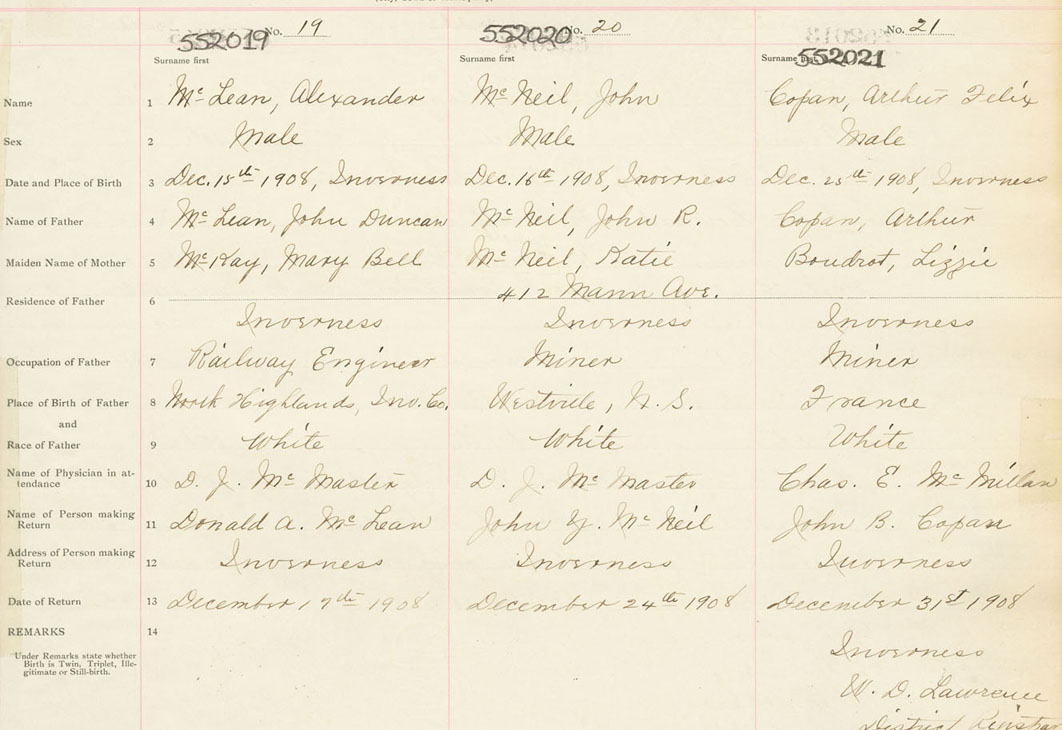 552019 No. 19 552020 No. 20 No. 21
Surname first Surname first Surname first 552021
Name 1 Mc Lean, Alexander Mc Neil, John Copan, Arthur Felix
Sex 2 Male Male Male
Date and Place of Birth 3 Dec. 15th 1908, Inverness Dec. 16th 1908, Inverness Dec. 25th 1908, Inverness
Name of Father 4 Mc Lean, John Duncan Mc Neil, John R. Copan, Arthur
Maiden Name of Mother 5 McKay, Mary Bell Mc Neil, Katie Boudrot, Lizzie
412 Mann Ave.
Residence of Father 6
Inverness Inverness Inverness
Occupation of Father 7 Railway Engineer Miner Miner
Place of Birth of Father 8 North Highlands, Inv. Co. Westville, N. S. France
and
Race of Father 9 White White White
Name of Physician in at-
tendance 10 D. J. Mc Master D. J. Mc Master Chas. E. Mc Millan
Name of Person making
Return 11 Donald A. Mc Lean John Y. Mc Neil John B. Copan
Address of Person making
Return 12 Inverness Inverness Inverness
Date of Return 13 December 17th 1908 December 24th 1908 December 31st 1908
REMARKS 14
Under Remarks state whether
Birth is Twin, Triplet, Ille-
gitimate or Still-birth.
Inverness
W. D. Lawrence
District Registrar